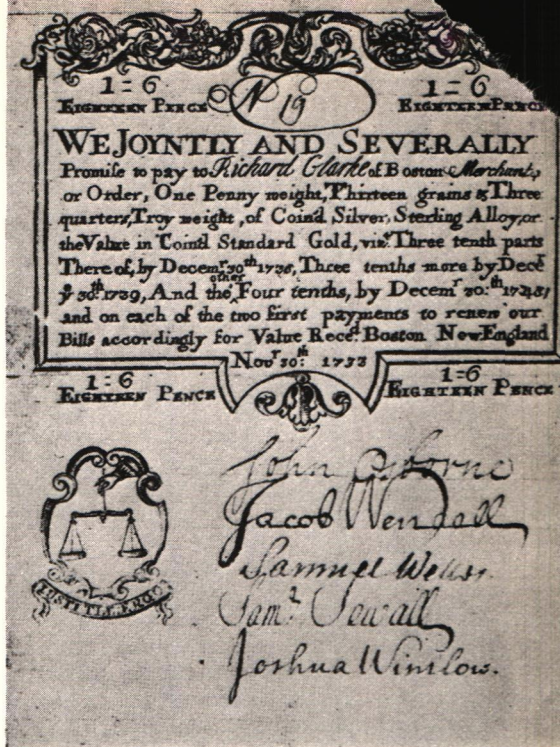 1=6
1=6
EIGHTEEN PENCE
No 19
EIGHTEEN PENCE
WE JOYNTLY AND SEVERALLY
Promise to pay to Richard Clarke of Boston Merchant,
or Order, One Penny weight, Thirteen grains & Three
quarters, Troy weight, of Coin'd Silver, Sterling Alloy, or
the Value in Coin'd Standard Gold, viz.t Three tenth parts
There of, by Decem.r 30th 1736, Three tenths more by Decr
ye 30th 1739, And the other Four tenths, by Decemr 30th
and on each of the two first payments to renew our
Bills accordingly for Value Recd. Boston New England
Novr 30th 1733
1=6
1=6
EIGHTEEN PENCE
EIGHTEEN PENCE
John Osborne
Jacob Wendell
Samuel Welles.
Saml. Sewall
Joshua Winslow.